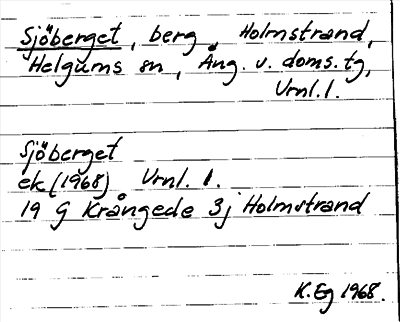 Sjöberget, berg, Holmstrand,
Helgums sn, Ång. v. doms. tg,
Vrnl. 1.
Sjöberget
ek (1968) Vrnl. 1.
19 G Krångede 3j Holmstrand
K. Eg 1968.